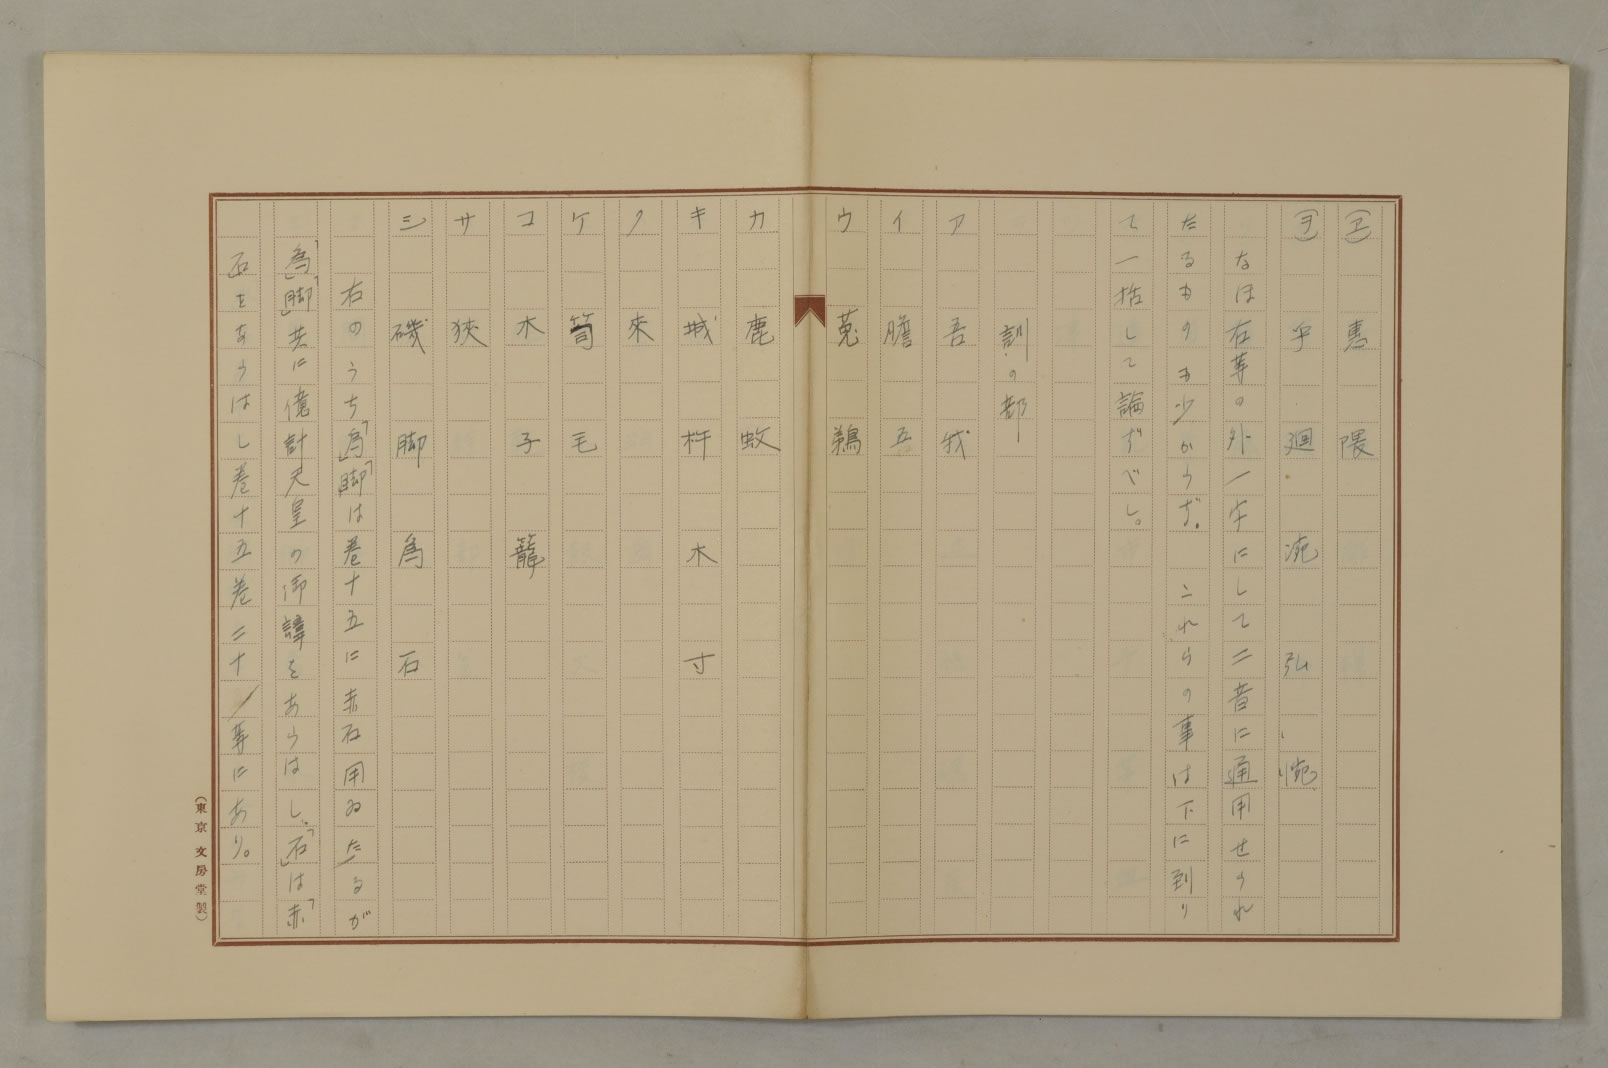 (ヱ) 惠 隈
(ヲ) 乎 廻 涴 弘 惋
なほ右等の外一字にして二音に通用せられ
たるもの も少からず。これらの事は下に到り
て一括して論ずべし。
訓の部
ア 吾 我
イ 膽 五
ウ 菟 鵜
カ 鹿 蚊
キ 城 杵 木 寸
ク 來
ケ 笥 毛
コ 木 子 籠
サ 狹
シ 磯 脚 為 石
右のうち「為」「脚」は巻十五に赤石用ゐたるが
「為」「脚」共に億計天皇の御諱をあらはし、「石」は「赤
石をあらはし巻十五巻二十等にあり。
(東京 文房堂製)